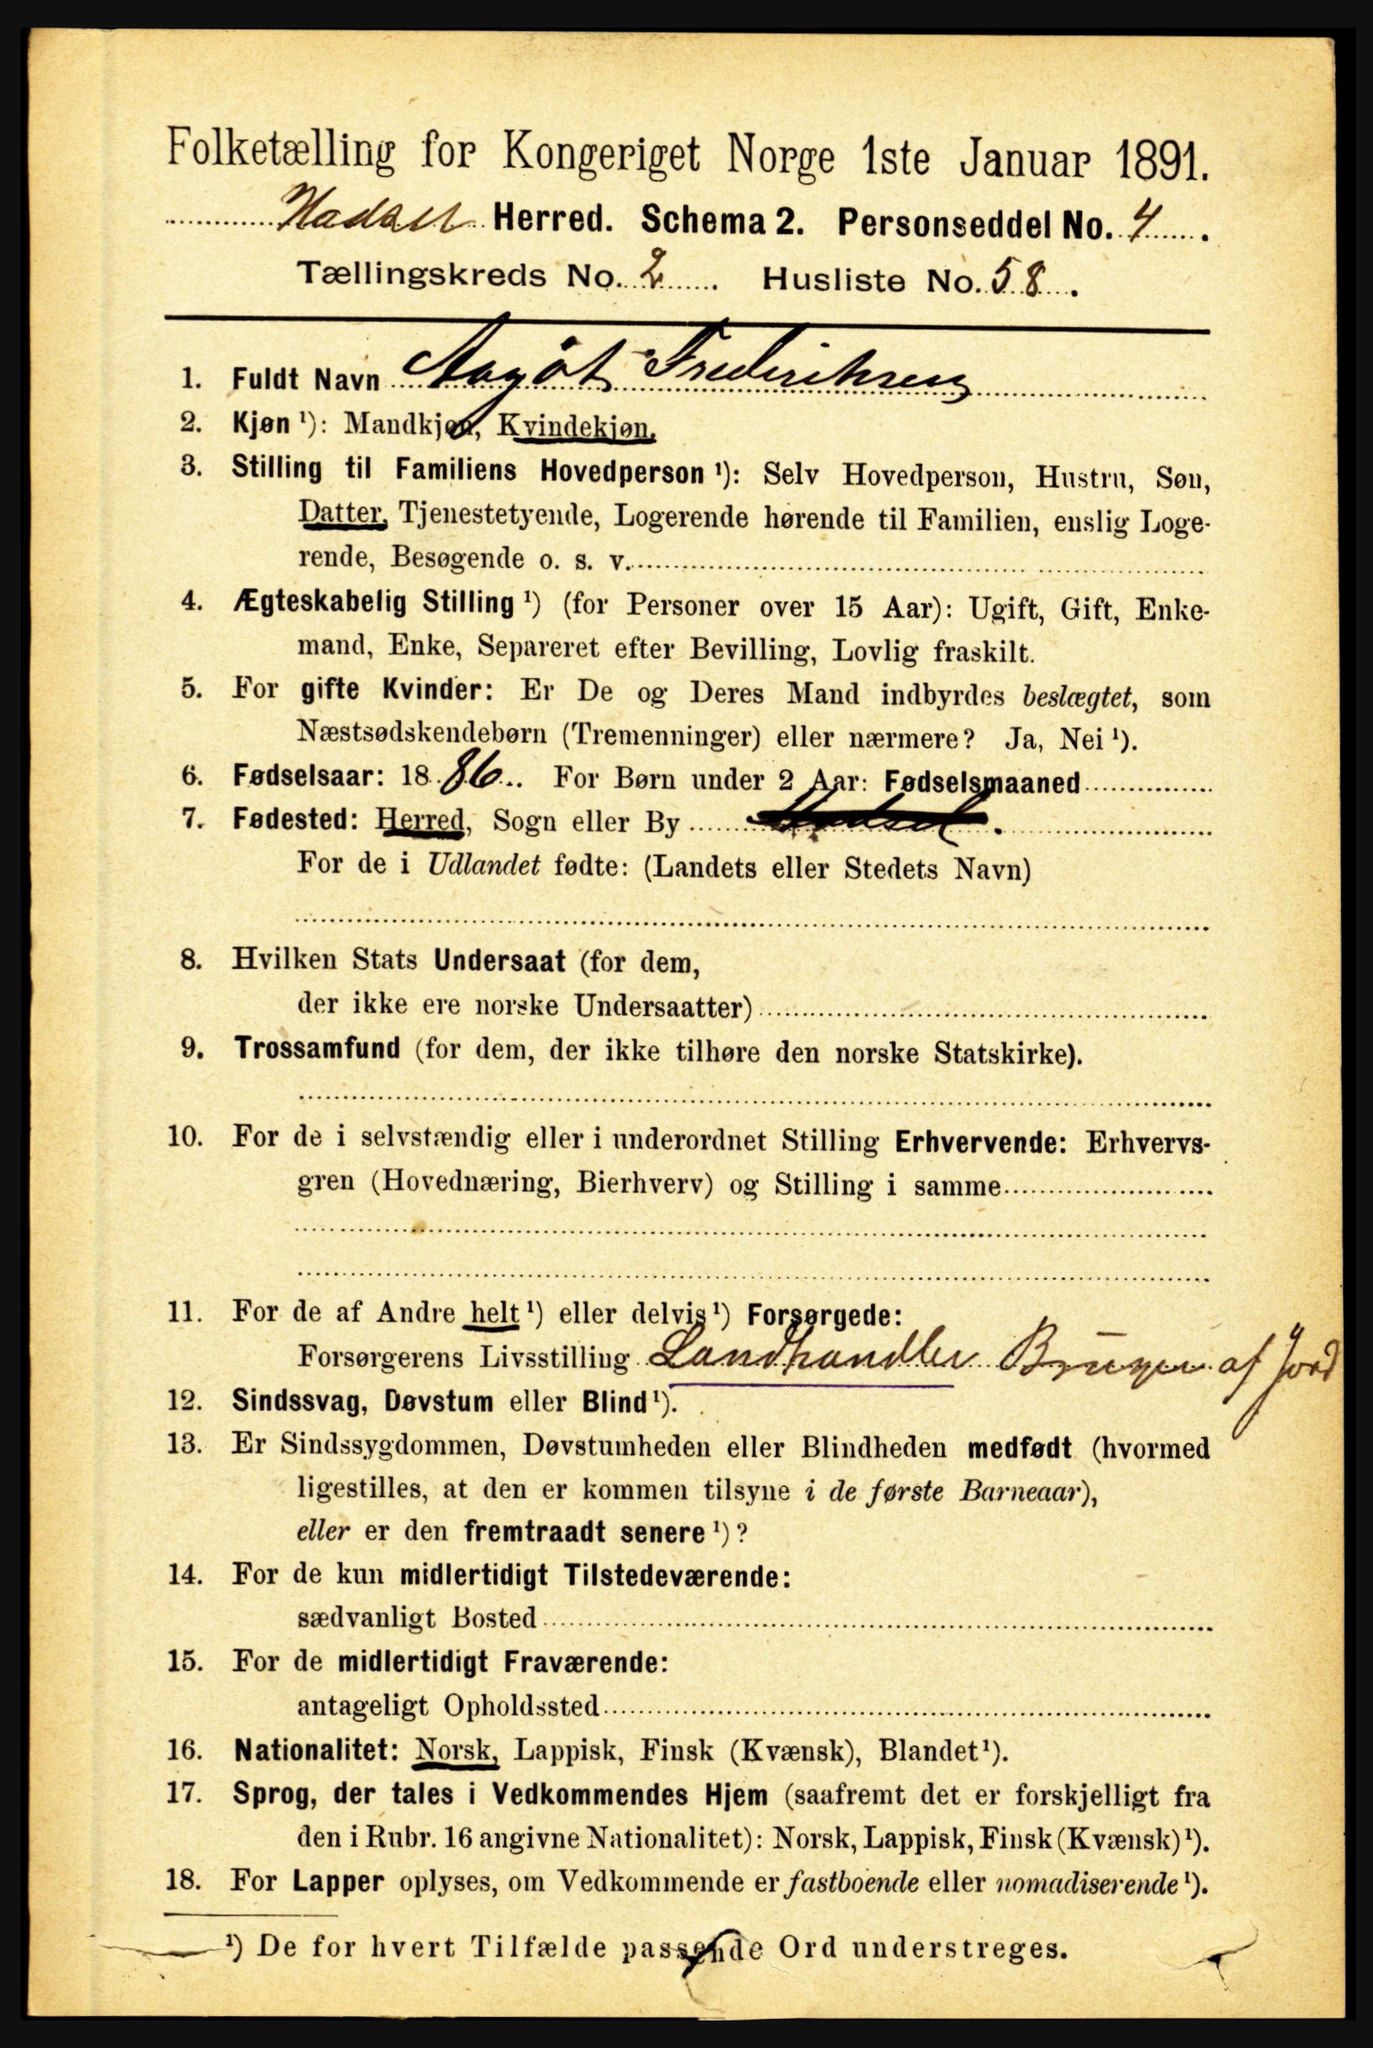 Folketælling for Kongeriget Norge 1ste Januar 1891.
Hadsel Herred. Schema 2. Personseddel No. 4.
Tællingskreds No. 2. Husliste No. 58.
1. Fuldt Navn Aagot Frederiksen
2. Kjøn ¹): Mandkjøn, Kvindekjøn.
3. Stilling til Familiens Hovedperson ¹): Selv Hovedperson, Hustru, Søn,
Datter, Tjenestetyende, Logerende hørende til Familien, enslig Loge-
rende, Besøgende o. s. v.
4. Ægteskabelig Stilling ¹) (for Personer over 15 Aar): Ugift, Gift, Enke-
mand, Enke, Separeret efter Bevilling, Lovlig fraskilt.
5. For gifte Kvinder: Er De og Deres Mand indbyrdes beslægtet, som
Næstsødskendebørn (Tremenninger) eller nærmere? Ja, Nei ¹).
6. Fødselsaar: 1886. For Børn under 2 Aar: Fødselsmaaned
7. Fødested: Herred, Sogn eller By Hadsel.
For de i Udlandet fødte: (Landets eller Stedets Navn)
8. Hvilken Stats Undersaat (for dem,
der ikke ere norske Undersaatter)
9. Trossamfund (for dem, der ikke tilhøre den norske Statskirke).
10. For de i selvstændig eller i underordnet Stilling Erhvervende: Erhvervs-
gren (Hovednæring, Bierhverv) og Stilling i samme
11. For de af Andre helt ¹) eller delvis ¹) Forsørgede:
Forsørgerens Livsstilling Landhandler Bruger af Jord
12. Sindssvag, Døvstum eller Blind ¹).
13. Er Sindssygdommen, Døvstumheden eller Blindheden medfødt (hvormed
ligestilles, at den er kommen tilsyne i de første Barneaar),
eller er den fremtraadt senere ¹)?
14. For de kun midlertidigt Tilstedeværende:
sædvanligt Bosted
15. For de midlertidigt Fraværende:
antageligt Opholdssted
16. Nationalitet: Norsk, Lappisk, Finsk (Kvænsk), Blandet ¹).
17. Sprog, der tales i Vedkommendes Hjem (saafremt det er forskjelligt fra
den i Rubr. 16 angivne Nationalitet): Norsk, Lappisk, Finsk (Kvænsk) ¹).
18. For Lapper oplyses, om Vedkommende er fastboende eller nomadiserende ¹).
¹) De for hvert Tilfælde passende Ord understreges.